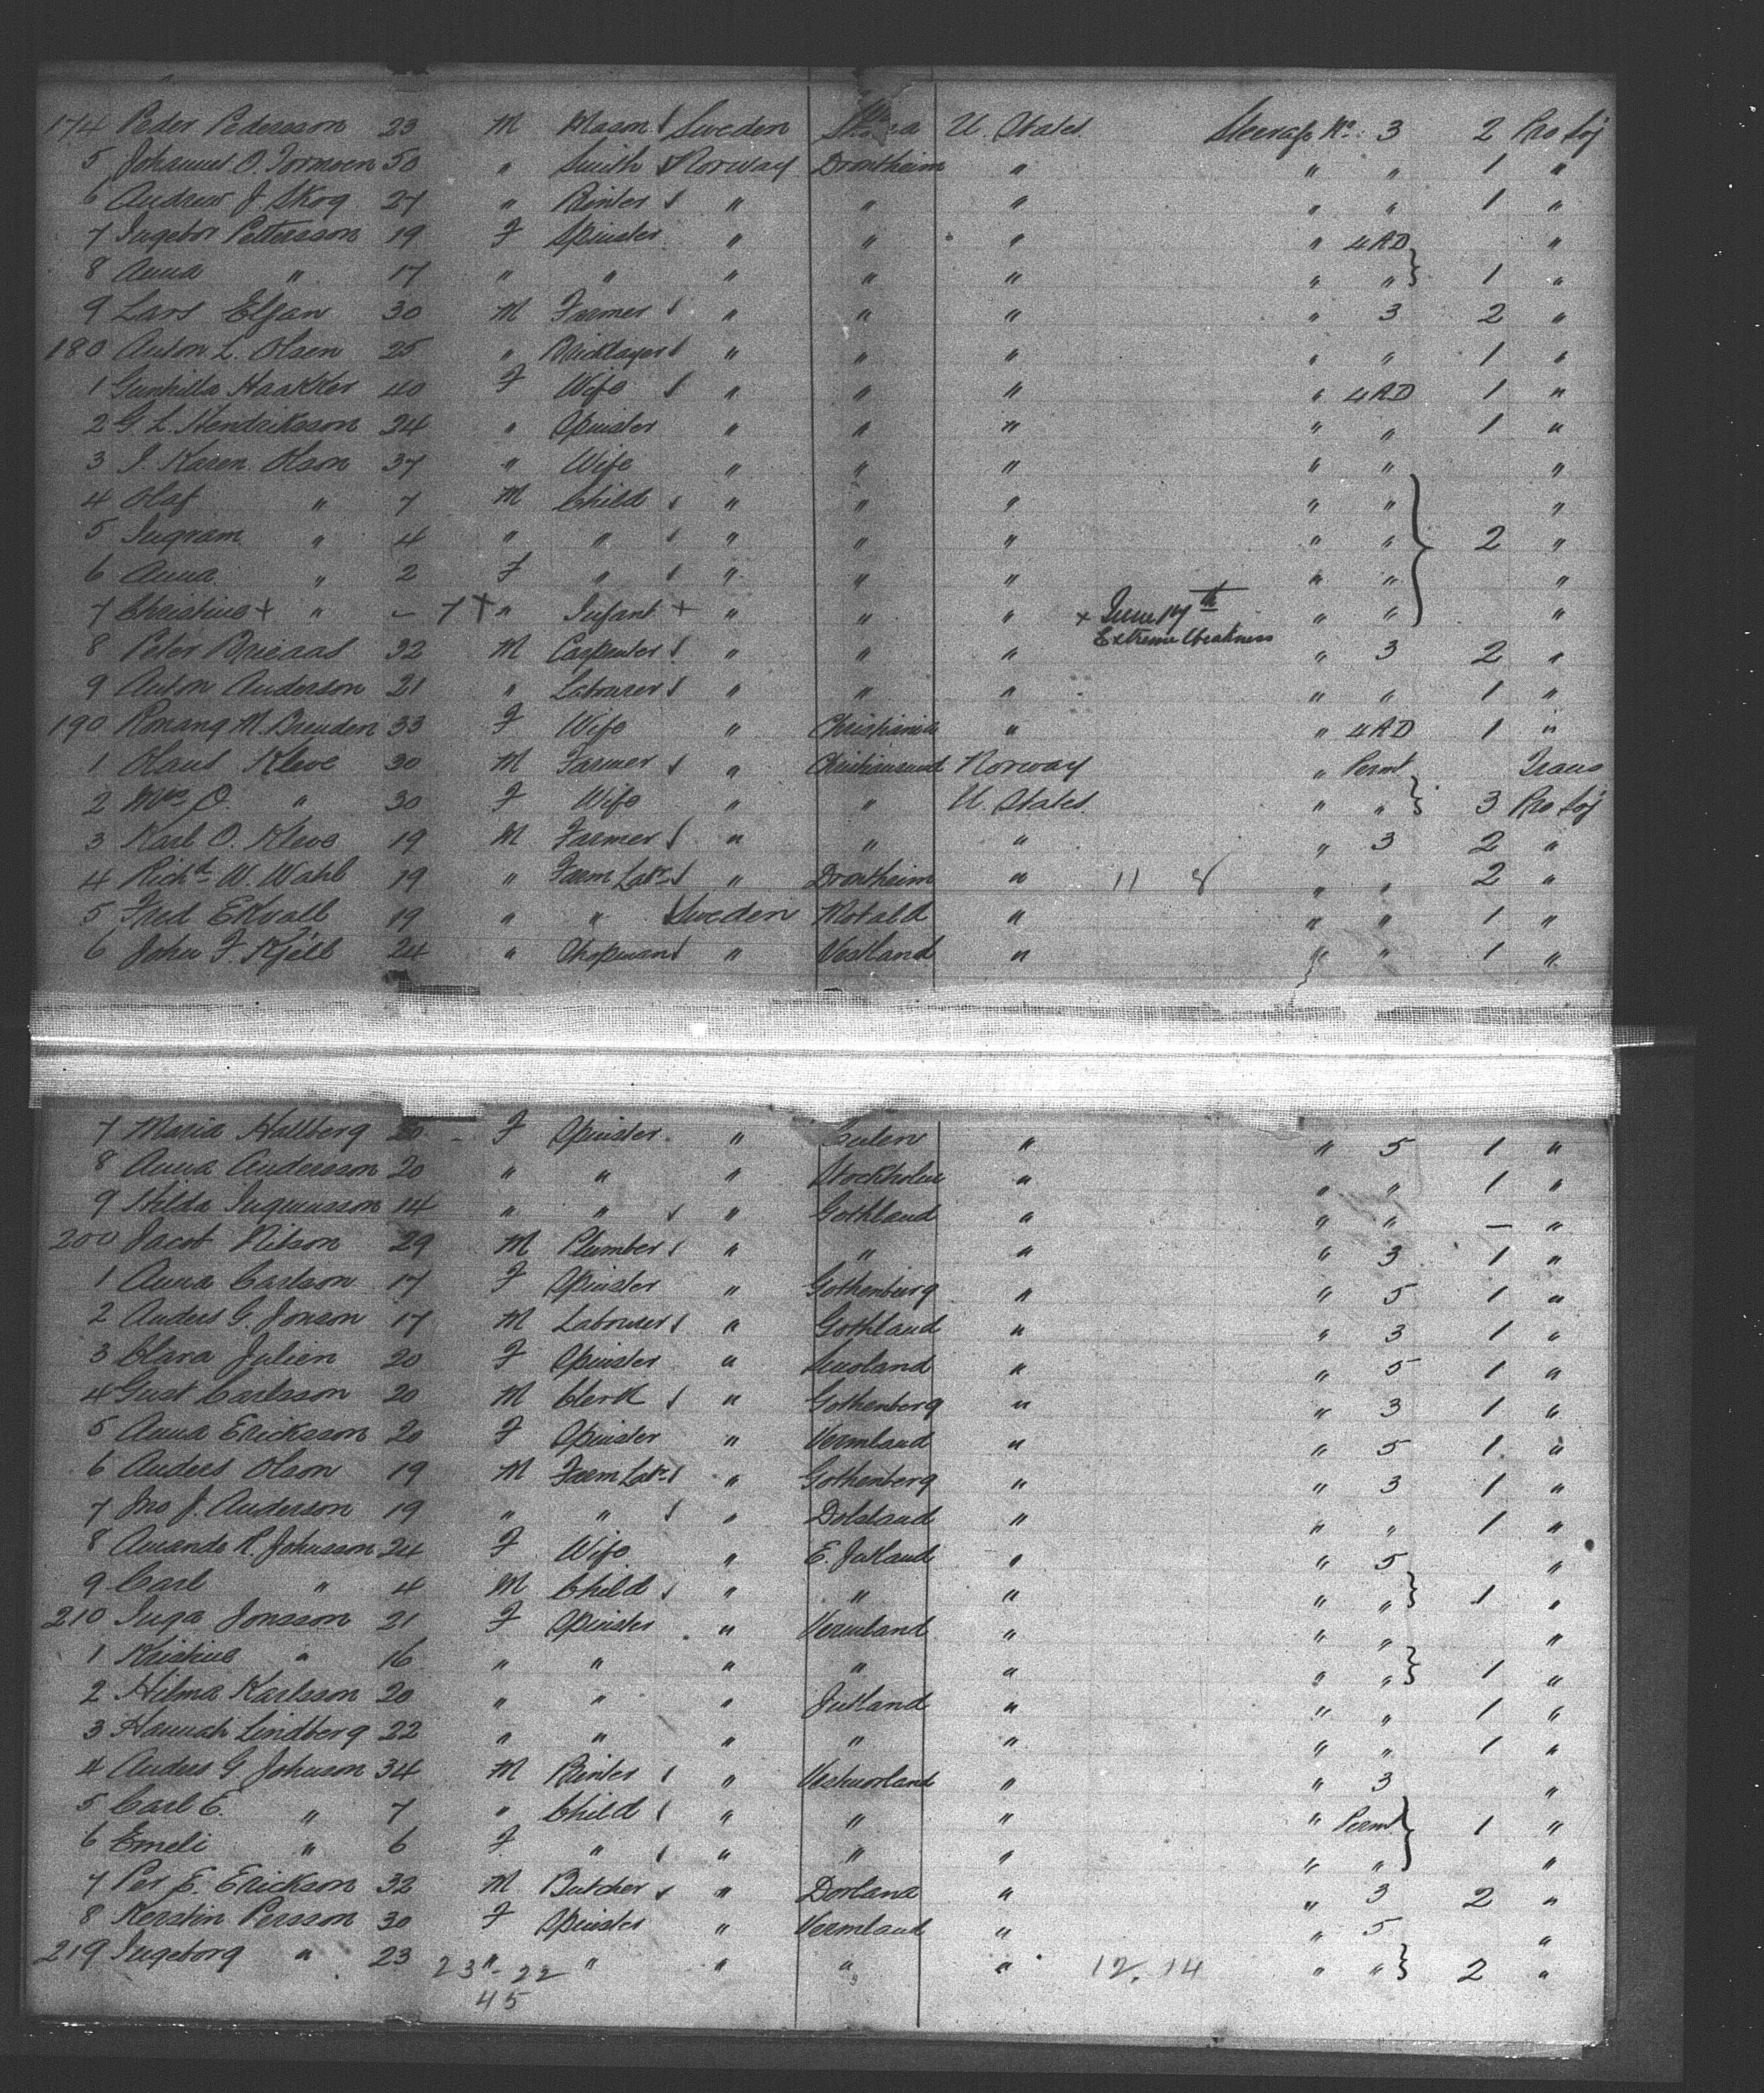 174 Peder Pedersson 23 M Mason Sweden U. States Steerage No. 3 2 Pro Soj
5 Johannes O. Tormoen 50 " Smith Norway Drontheim " " " 1 "
6 Andrew J. Skog 27 " Printer " " " " " 1 "
7 Ingebor Pettersson 19 F Spinster " " " " 4 AD "
8 Anna " 17 " " " " " " " 1 "
9 Lars Elgan 30 M Farmer " " " " 3 2 "
180 Anton L. Olsen 25 " Bricklayer " " " " " 1 "
1 Gunhilla Haakker 40 F Wife " " " " 4 AD 1 "
2 G. L. Hendriksson 24 " Spinster " " " " " 1 "
3 I. Karen Olson 37 " Wife " " " " " "
4 Olaf " 7 M Child " " " " " "
5 Ingram " 4 " " " " " " " 2 "
6 Anna " 2 F " " " " " " "
7 Christina + " - 7 + " Infant + " " " + June 17th " " "
Extreme Weakness
8 Peter 32 M Carpenter " " " " 3 2 "
9 Anton Anderson 21 " Labourer " " " " " 1 "
190 M. Brenden 33 F Wife " Christiania " " 4 AD 1 "
1 Olaus Kleve 30 M Farmer " Christiansund Norway " Permt Trans
2 Mrs O. " 30 F Wife " " U. States " " 3 Pro Soj
3 Karl O. Kleve 19 M Farmer " " " " 3 2 "
4 Richd W. Wahl 19 " Farm Labr " Drontheim " 11 8 " " 2 "
5 Fred Ekvall 19 " " Sweden Motala " " " 1 "
6 John F. Kjell 24 " Shopman " Vestland " " " 1 "
7 Maria Hallberg 20 F Spinster " " " 5 1 "
8 Anna Andersson 20 " " " Stockholm " " " 1 "
9 Hilda Ingmusson 14 " " " Gothland " " " — "
200 Jacob Nilson 29 M Plumber " " " " 3 1 "
1 Anna Carlson 17 F Spinster " Gothenburg " " 5 1 "
2 Anders G. Jonson 17 M Labourer " Gothland " " 3 1 "
3 Clara Julien 20 F Spinster " " " 5 1 "
4 Gust Carlsson 20 M Clerk " Gothenberg " " 3 1 "
5 Anna Ericksson 20 F Spinster " Vermland " " 5 1 "
6 Anders Olson 19 M Farm Labr " Gothenberg " " 3 1 "
7 Jno J. Anderson 19 " " " Dolsland " " " 1 "
8 Amanda R. Johnsson 24 F Wife " E. Jutland " " 5 "
9 Carl " 4 M Child " " " " " 1 "
210 Inga Jonsson 21 F Spinster " Vermland " " " "
1 Kristine " 16 " " " " " " " 1 "
2 Hilma Karlsson 20 " " " Jutland " " " 1 "
3 Hannah Lindberg 22 " " " " " " " 1 "
4 Anders G. Johnson 34 M Printer " Vestmorland " " 3 "
5 Carl E. " 7 " Child " " " " Permt 1 "
6 Emeli " 6 F " " " " " " "
7 Per E. Erickson 32 M Butcher " Dorland " " 3 2 "
8 Kerstin Persson 30 F Spinster " Vermland " " 5 "
219 Ingeborg " 23 " " " " " 12. 14 " " 2 "
23 - 22
45